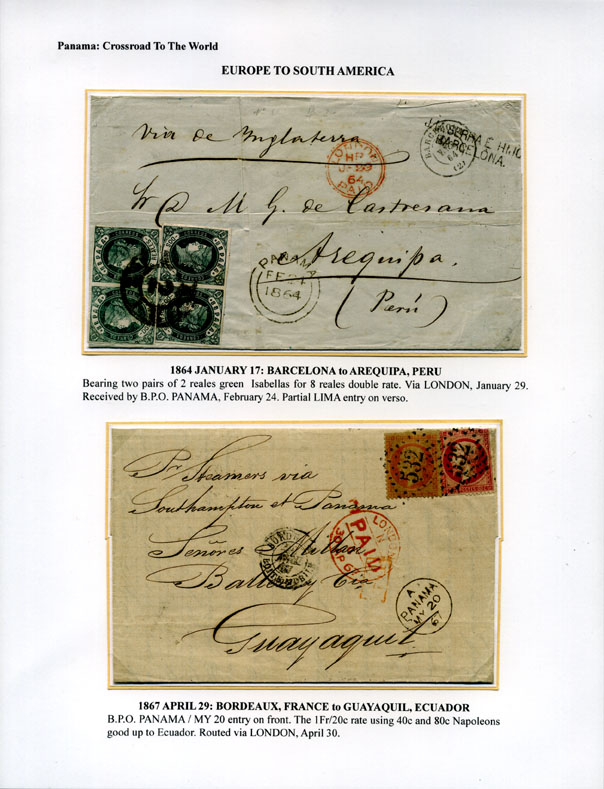 Panama: Crossroad To The World
EUROPE TO SOUTH AMERICA
Via de Inglaterra
LONDON
64
PAID
SERRA E HIJO
BARCELONA.
M. G. de Castresana
Arequipa.
(Perú)
PANAMA
FE 24
1864
1864 JANUARY 17: BARCELONA to AREQUIPA, PERU
Bearing two pairs of 2 reales green Isabellas for 8 reales double rate. Via LONDON, January 29.
Received by B.P.O. PANAMA, February 24. Partial LIMA entry on verso.
532
532
Pr Steamers via
Southampton et Panama
Señores Millan
Ballen y Cia
Guayaquil
LONDON
PAID
A
PANAMA
MY 20
67
1867 APRIL 29: BORDEAUX, FRANCE to GUAYAQUIL, ECUADOR
B.P.O. PANAMA / MY 20 entry on front. The 1Fr/20c rate using 40c and 80c Napoleons
good up to Ecuador. Routed via LONDON, April 30.